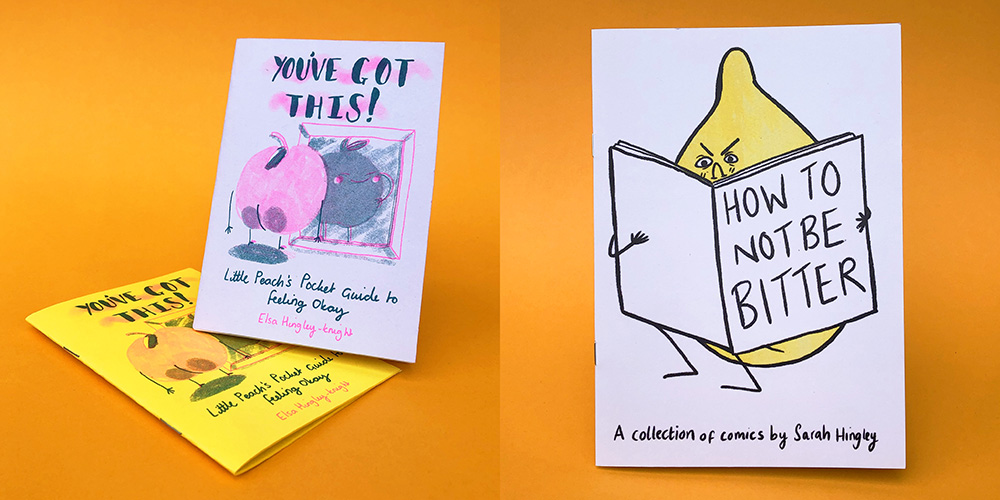 YOU'VE GOT
THIS!
Little Peach's Pocket Guide to
feeling Okay
Elsa Hingley-Knight
YOU'VE GOT
THIS!
Little Peach's Pocket Guide to
feeling Okay
Elsa Hingley-Knight
HOW TO
NOT BE
BITTER
A collection of comics by Sarah Hingley